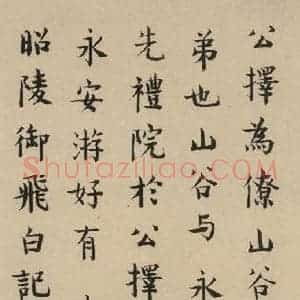 公擇為僚山谷
弟也山谷与永
先禮院於公擇
永安游好有
昭陵御飛白記
Shufaziliao.COM